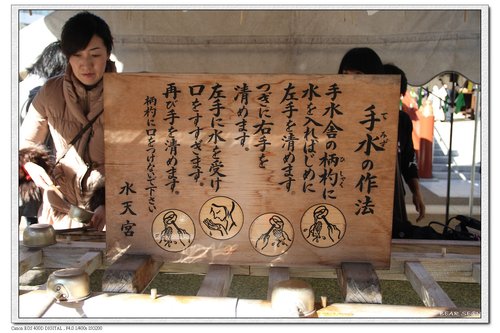 手水の作法
てみず
手水舎の柄杓に
ひしゃく
水を入ればじめに
左手を清めます。
つぎに右手を
清めます。
左手に水を受け
口をすすぎます。
再び手を清めます。
柄杓に口をつけないで下さい
水天宮
BEAR SEAN
Canon EOS 400D DIGITAL , F4.0 1/400s ISO200